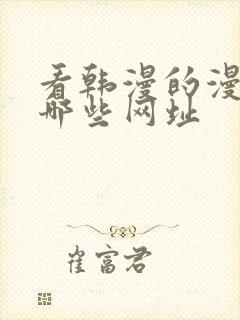 看韩漫的漫
哪些网址
崔富君